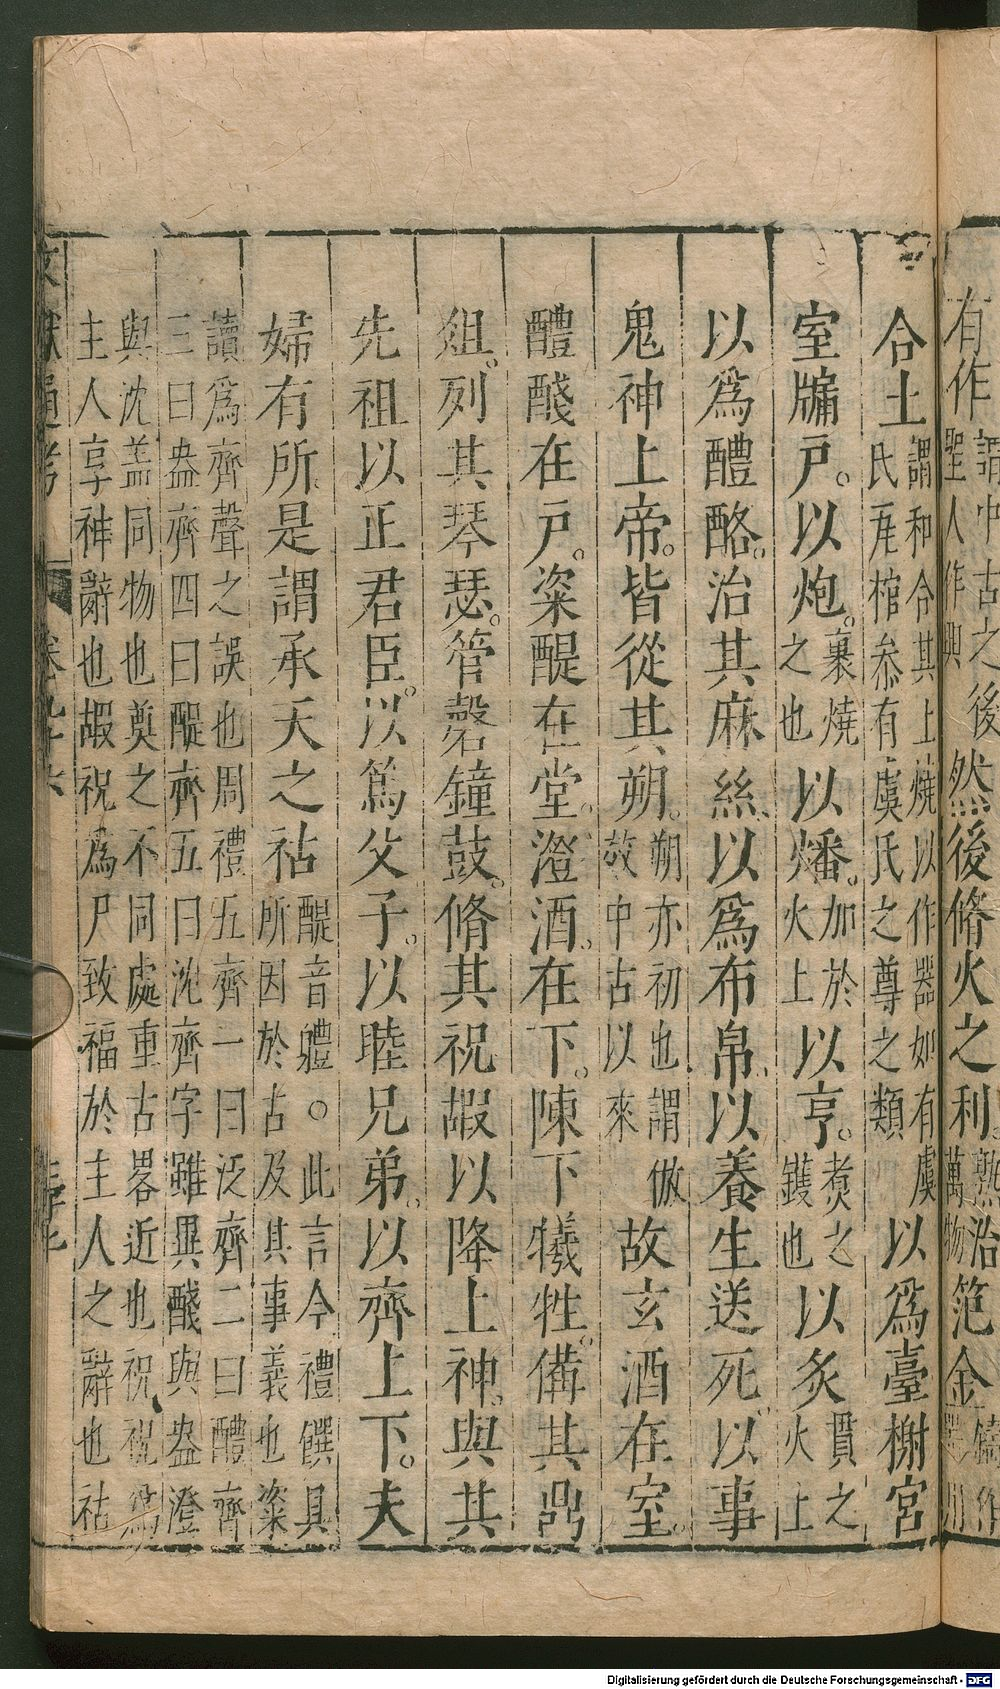 有作謂中古之後聖人作與然後脩火之利熟治萬物范金鑄作
合土謂和合其上燒以作器如有虞氏瓦棺叅有虞氏之尊之類以爲臺榭宮
室牖戸。以炮。裹燒之也以燔。加於火上以亨。煑之鑊也以炙貫之火上
以爲醴酪。治其麻絲以爲布帛以養生送死以事
鬼神上帝。皆從其朔。朔亦初也謂倣故中古以來故玄酒在室。
醴醆在戸。粢醍在堂。澄酒。在下。陳下犧牲。備其鼎
俎。列其琴瑟。管磬鐘鼓。脩其祝嘏以降上神。與其
先祖以正君臣。以篤父子。以睦兄弟。以齊上下。夫
婦有所是謂承天之祜醍音體○此言今禮饌具所因於古及其事義也粢
讀爲齊聲之誤也周禮五齊一曰泛齊二曰醴齊
三曰盎齊四曰醍齊五曰沈齊字雖異醆與盎澄
與沈盖同物也奠之不同處重古畧近也祝祝爲
主人享神辭也嘏祝爲尸致福於主人之辭也祜
文獻通考 卷九十六
Digitalisierung gefördert durch die Deutsche Forschungsgemeinschaft - DFG